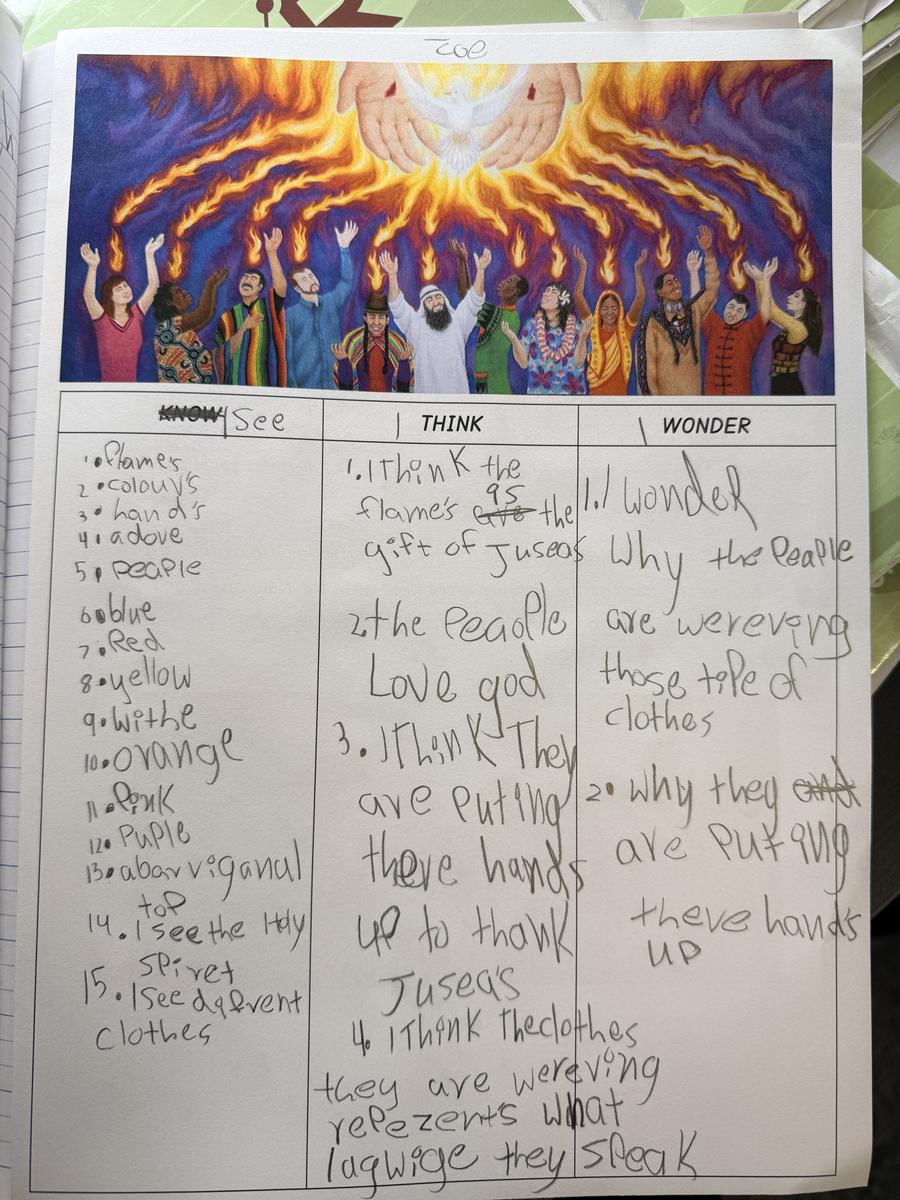 Zoe
KNOW See
1. flames
2 • colour's
3 • hand's
4. a dove
5. peaple
6. blue
7. Red
8. yellow
9. withe
10. orange
11. Pink
12. Puple
13. abarviganal
top
14. I see the Holy
Spiret
15. I see dafrent
clothes
THINK
1. I think the
flame's are as the
gift of Juseas
2. the Peaople
Love god
3. I think They
are puting
there hands
up to thank
Jusea's
4. I think The clothes
they are wereving
repezents what
lagwige they speak
WONDER
1. I wonder
Why the Peaple
are wereving
those tipe of
clothes
2. why they and
are puting
there hand's
up